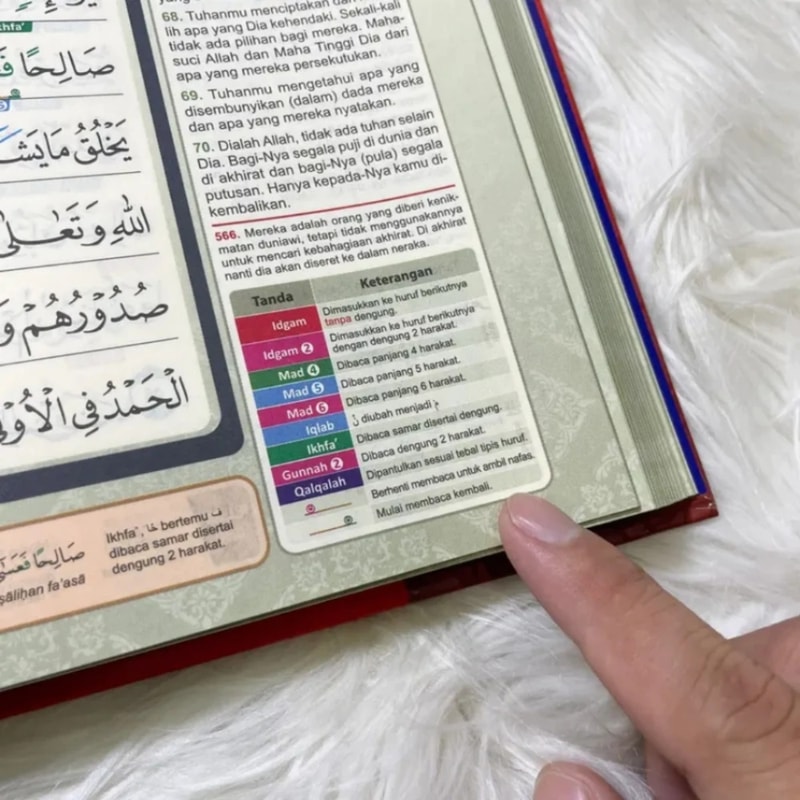 68. Tuhanmu menciptakan dan
lih apa yang Dia kehendaki. Sekali-kali
tidak ada pilihan bagi mereka. Maha-
suci Allah dan Maha Tinggi Dia dari
apa yang mereka persekutukan.
69. Tuhanmu mengetahui apa yang
disembunyikan (dalam) dada mereka
dan apa yang mereka nyatakan.
70. Dialah Allah, tidak ada tuhan selain
Dia. Bagi-Nya segala puji di dunia dan
di akhirat dan bagi-Nya (pula) segala
putusan. Hanya kepada-Nya kamu di-
kembalikan.
566. Mereka adalah orang yang diberi kenik-
matan duniawi, tetapi tidak menggunakannya
untuk mencari kebahagiaan akhirat. Di akhirat
nanti dia akan diseret ke dalam neraka.
Tanda Keterangan
Idgam Dimasukkan ke huruf berikutnya
tanpa dengung.
Idgam 2 Dimasukkan ke huruf berikutnya
dengan dengung 2 harakat.
Mad 4 Dibaca panjang 4 harakat.
Mad 5 Dibaca panjang 5 harakat.
Mad 6 Dibaca panjang 6 harakat.
Iqlab diubah menjadi
Ikhfa' Dibaca samar disertai dengung.
Gunnah 2 Dibaca dengung 2 harakat.
Qalqalah Dipantulkan sesuai tebal tipis huruf.
Berhenti membaca untuk ambil nafas.
Mulai membaca kembali.
صَالِحًا
يَخْلُقُ مَا يَشَ
اللّٰهِ وَتَعٰلٰى
صُدُوْرُهُمْ وَ
الْحَمْدُ فِى الْاُوْلٰى
صَالِحًا فَعَسٰٓى
ṣāliḥan fa'asā
Ikhfa', حًا bertemu ف
dibaca samar disertai
dengung 2 harakat.